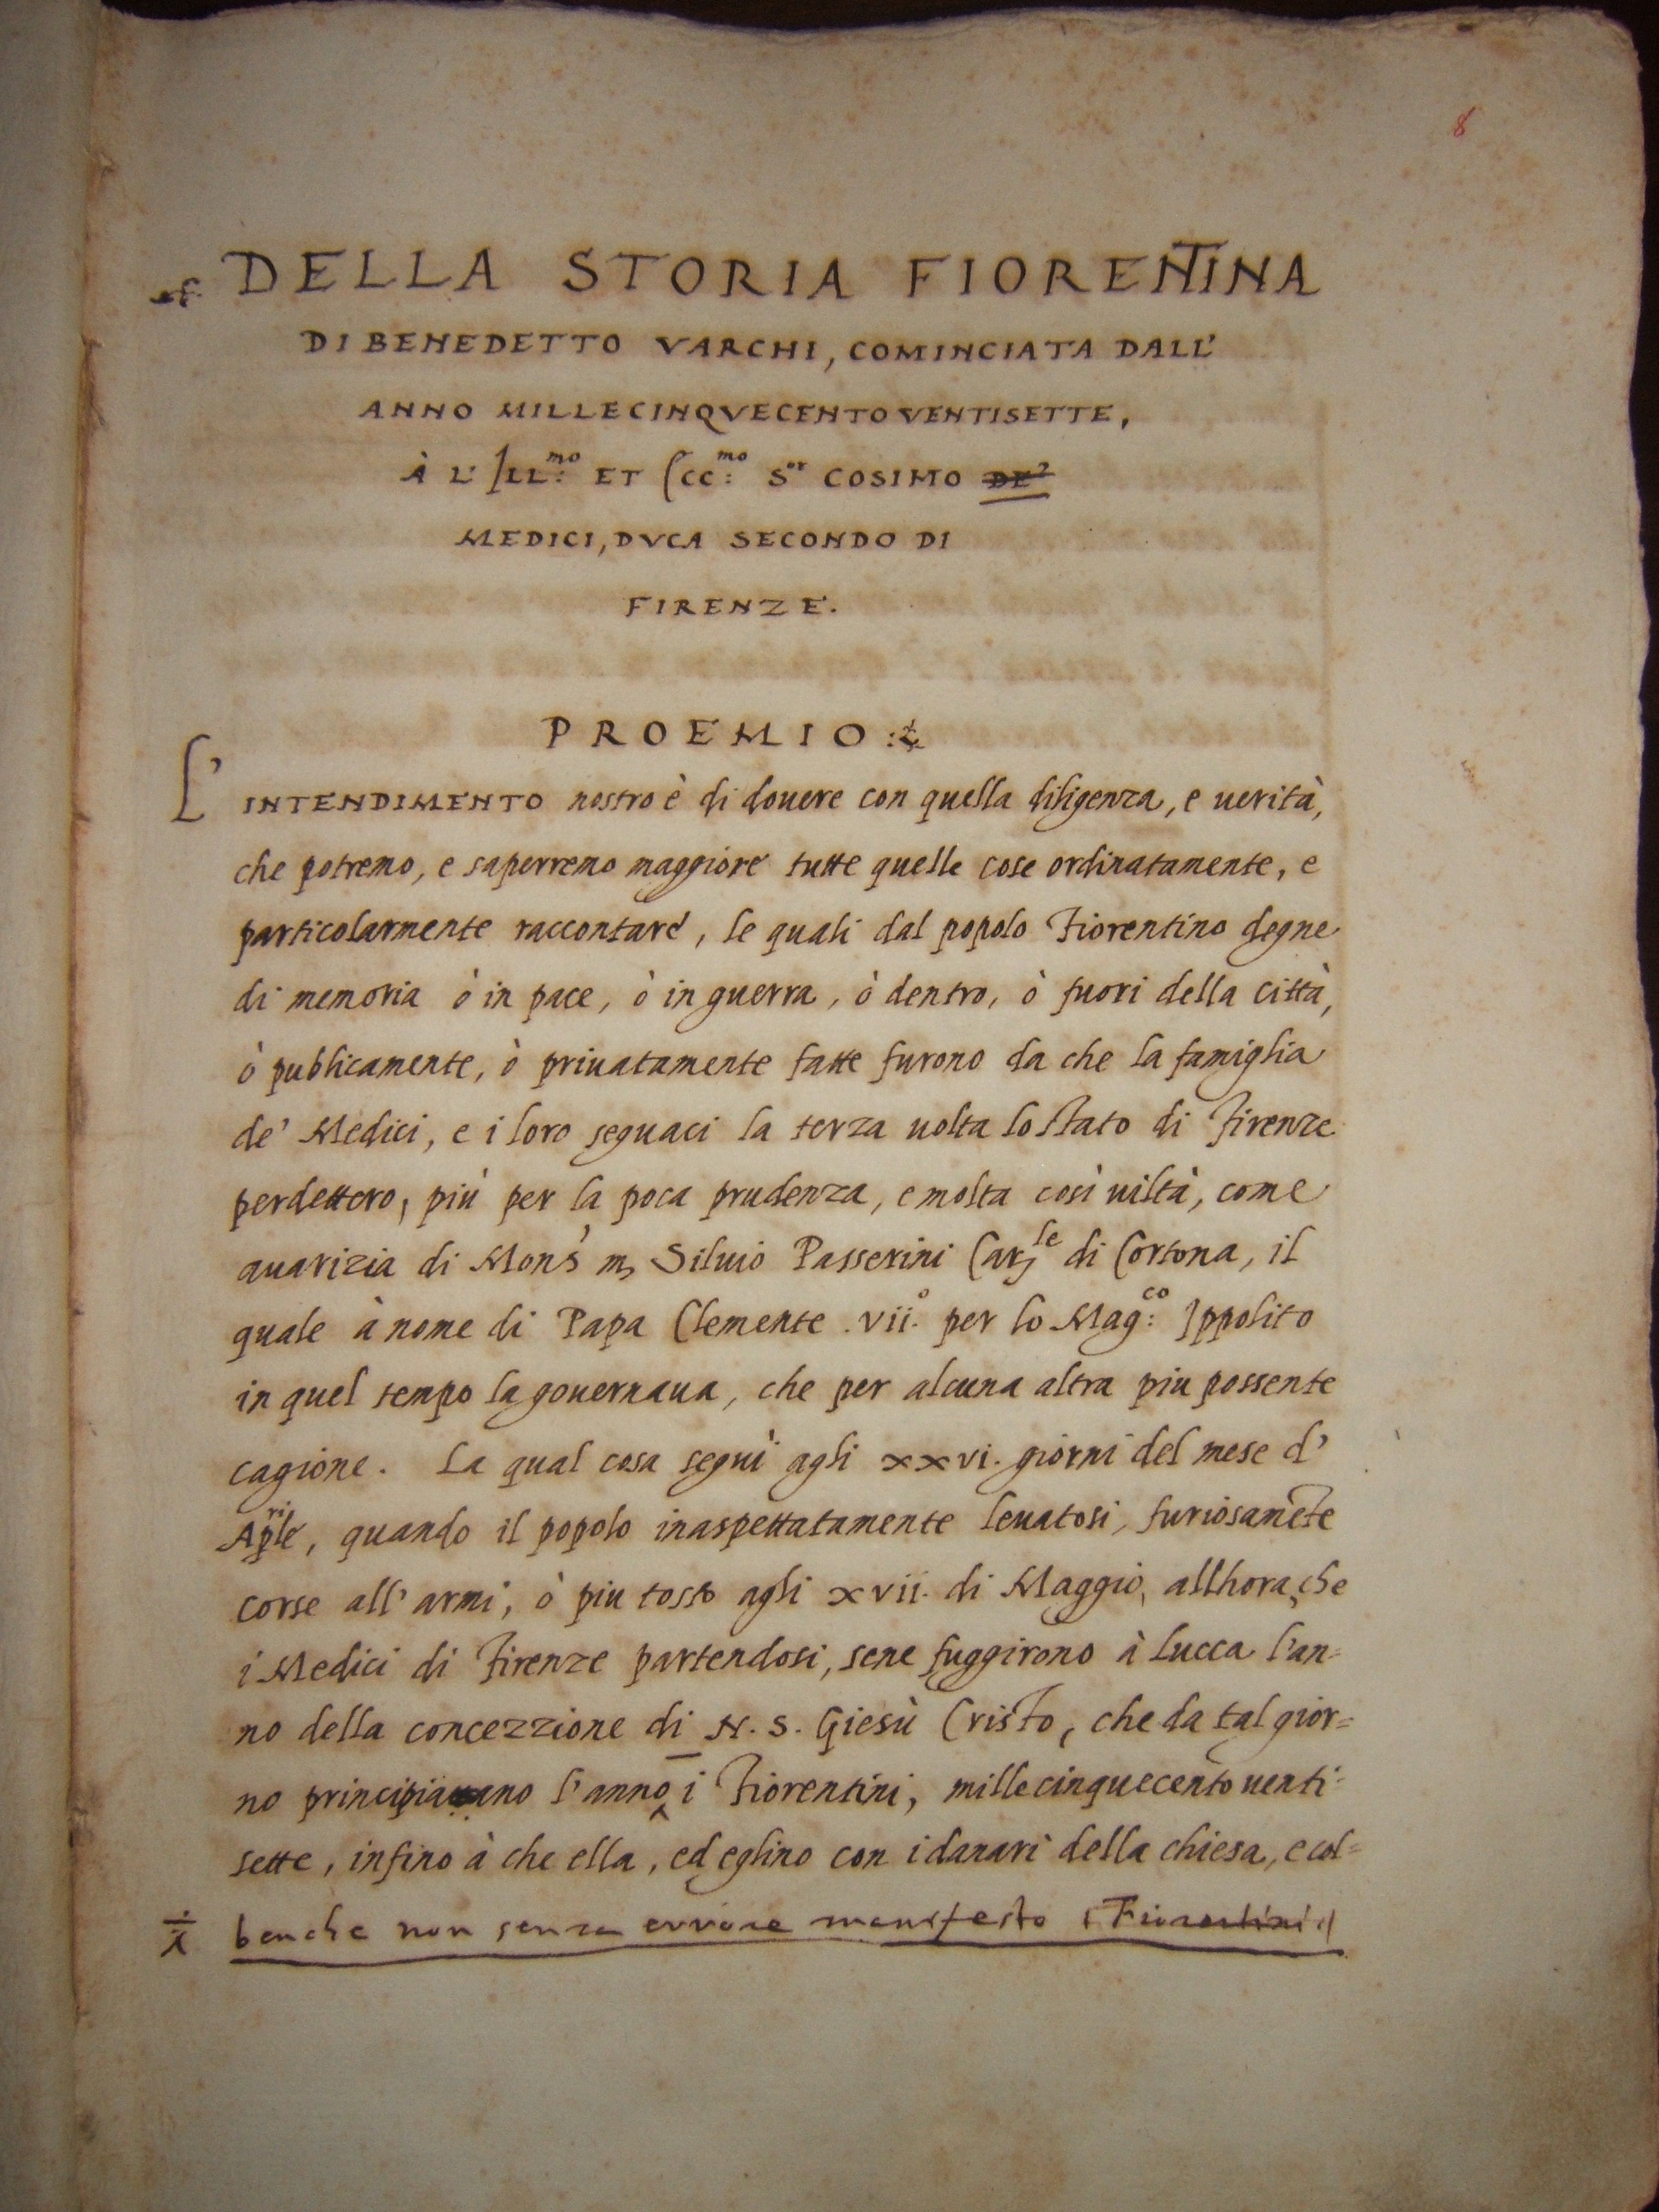 8
DELLA STORIA FIORENTINA
DI BENEDETTO VARCHI, COMINCIATA DALL'
ANNO MILLECINQVECENTOVENTISETTE,
À L' ILL:mo ET ECC:mo Sor COSIMO DE'
MEDICI, DVCA SECONDO DI
FIRENZE.
PROEMIO:
L'INTENDIMENTO nostro è di douere con quella diligenza, e uerità,
che potremo, e saperremo maggiore tutte quelle cose ordinatamente, e
particolarmente raccontare, le quali dal popolo Fiorentino degne
di memoria ò in pace, ò in guerra, ò dentro, ò fuori della città,
ò publicamente, ò priuatamente fatte furono da che la famiglia
de' Medici, e i loro seguaci la terza uolta lo stato di Firenze
perdettero, più per la poca prudenza, e molta così uiltà, come
auarizia di Mons.r m. Siluio Passerini Car.le di Cortona, il
quale à nome di Papa Clemente .vii.o per lo Mag:co Ippolito
in quel tempo la gouernaua, che per alcuna altra piu possente
cagione. La qual cosa seguì agli xxvi. giorni del mese d'
Aprile, quando il popolo inaspettatamente leuatosi, furiosamēte
corse all' armi, ò piu tosto agli xvii. di Maggio, allhora, che
i Medici di Firenze partendosi, sene fuggirono à Lucca l'an=
no della concezzione di N. S. Giesù Cristo, che da tal gior=
no principiauano l'anno i Fiorentini, millecinquecento uenti=
sette, infino à che ella, ed eglino con i danari della chiesa, e col=
benche non senza errore manifesto i Fiorentini